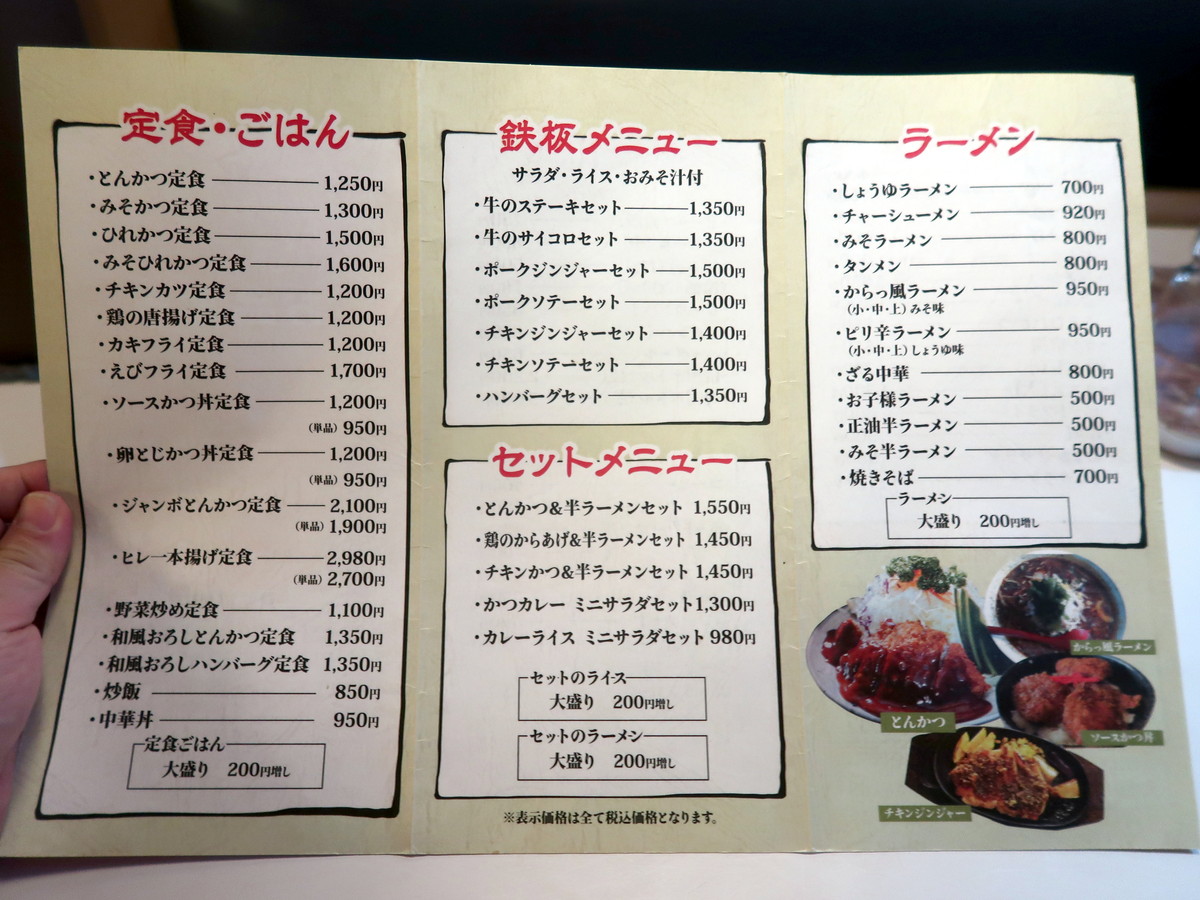 定食・ごはん
・とんかつ定食 1,250円
・みそかつ定食 1,300円
・ひれかつ定食 1,500円
・みそひれかつ定食 1,600円
・チキンカツ定食 1,200円
・鶏の唐揚げ定食 1,200円
・カキフライ定食 1,200円
・えびフライ定食 1,700円
・ソースかつ丼定食 1,200円
（単品）950円
・卵とじかつ丼定食 1,200円
（単品）950円
・ジャンボとんかつ定食 2,100円
（単品）1,900円
・ヒレ一本揚げ定食 2,980円
（単品）2,700円
・野菜炒め定食 1,100円
・和風おろしとんかつ定食 1,350円
・和風おろしハンバーグ定食 1,350円
・炒飯 850円
・中華丼 950円
定食ごはん
大盛り 200円増し
鉄板メニュー
サラダ・ライス・おみそ汁付
・牛のステーキセット 1,350円
・牛のサイコロセット 1,350円
・ポークジンジャーセット 1,500円
・ポークソテーセット 1,500円
・チキンジンジャーセット 1,400円
・チキンソテーセット 1,400円
・ハンバーグセット 1,350円
セットメニュー
・とんかつ&半ラーメンセット 1,550円
・鶏のからあげ&半ラーメンセット 1,450円
・チキンかつ&半ラーメンセット 1,450円
・かつカレー ミニサラダセット 1,300円
・カレーライス ミニサラダセット 980円
セットのライス
大盛り 200円増し
セットのラーメン
大盛り 200円増し
※表示価格は全て税込価格となります。
ラーメン
・しょうゆラーメン 700円
・チャーシューメン 920円
・みそラーメン 800円
・タンメン 800円
・からっ風ラーメン 950円
（小・中・上）みそ味
・ピリ辛ラーメン 950円
（小・中・上）しょうゆ味
・ざる中華 800円
・お子様ラーメン 500円
・正油半ラーメン 500円
・みそ半ラーメン 500円
・焼きそば 700円
ラーメン
大盛り 200円増し
からっ風ラーメン
とんかつ
ソースかつ丼
チキンジンジャー